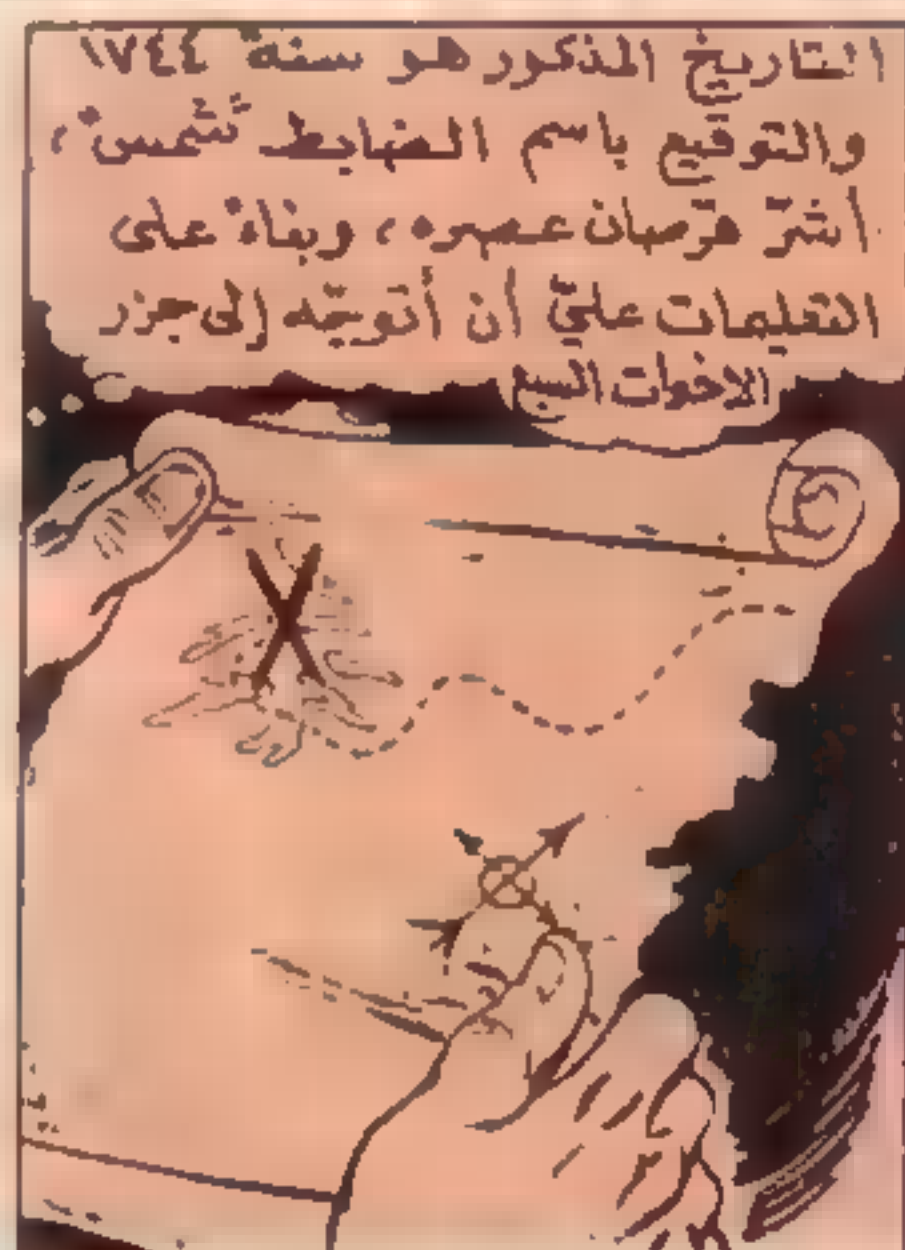 التاريخ المذكور هو سنة ١٧٤٤
والتوقيع باسم الضابط تشمس،
أشرّ قرصان عصره، وبناءً على
التعليمات عليّ أن أتوجّه إلى جزر
الاخوات السبع